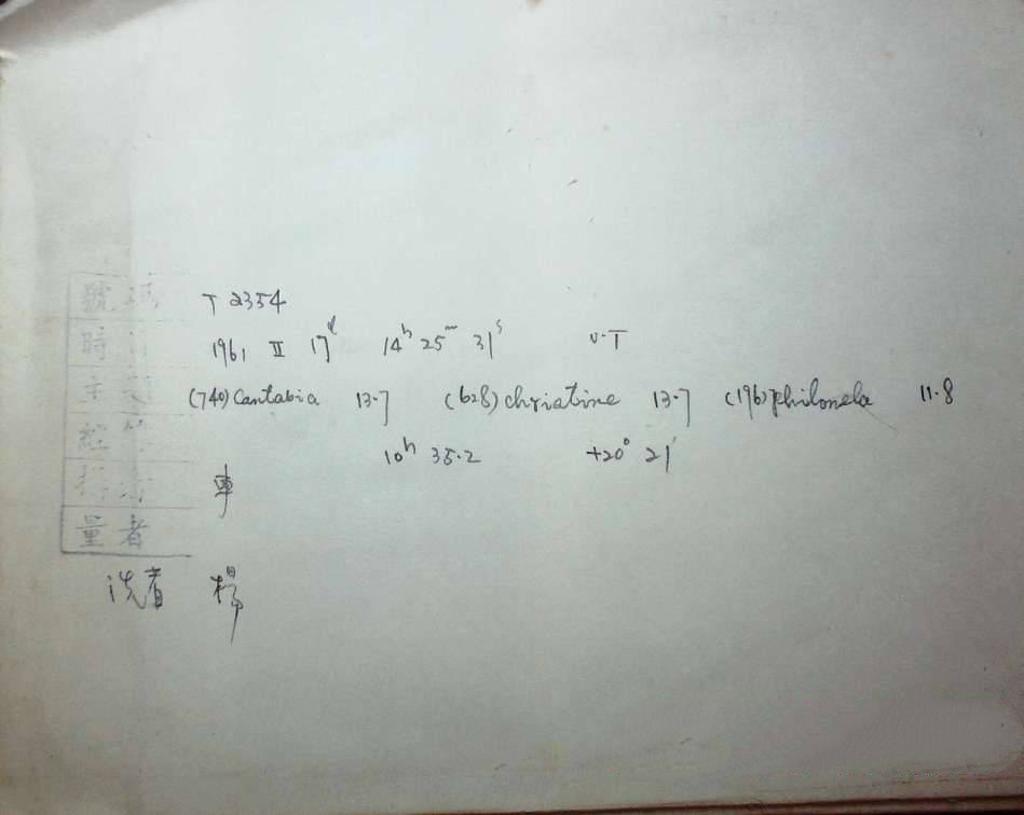 號
T 2354
時
1961 II 17d 14h 25m 31s U.T
主
(740) Cantabia 13.7 (628) Christine 13.7 (196) Philomela 11.8
10h 35.2 +20° 21'
車
量者
洗者 楊